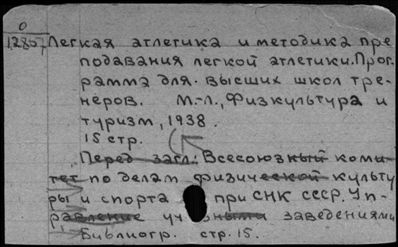 0
1280, Легкая атлетика и методика пре
подавания легкой атлетики. Прог
рамма для высших школ тре-
неров. М.-Л., Физкультура и
туризм, 1938.
15 стр.
Перед загл.: Всесоюзный коми
тет по делам физической культу
ры и спорта при СНК СССР. Уп-
равление учебными заведениями
Библиогр. стр. 15.